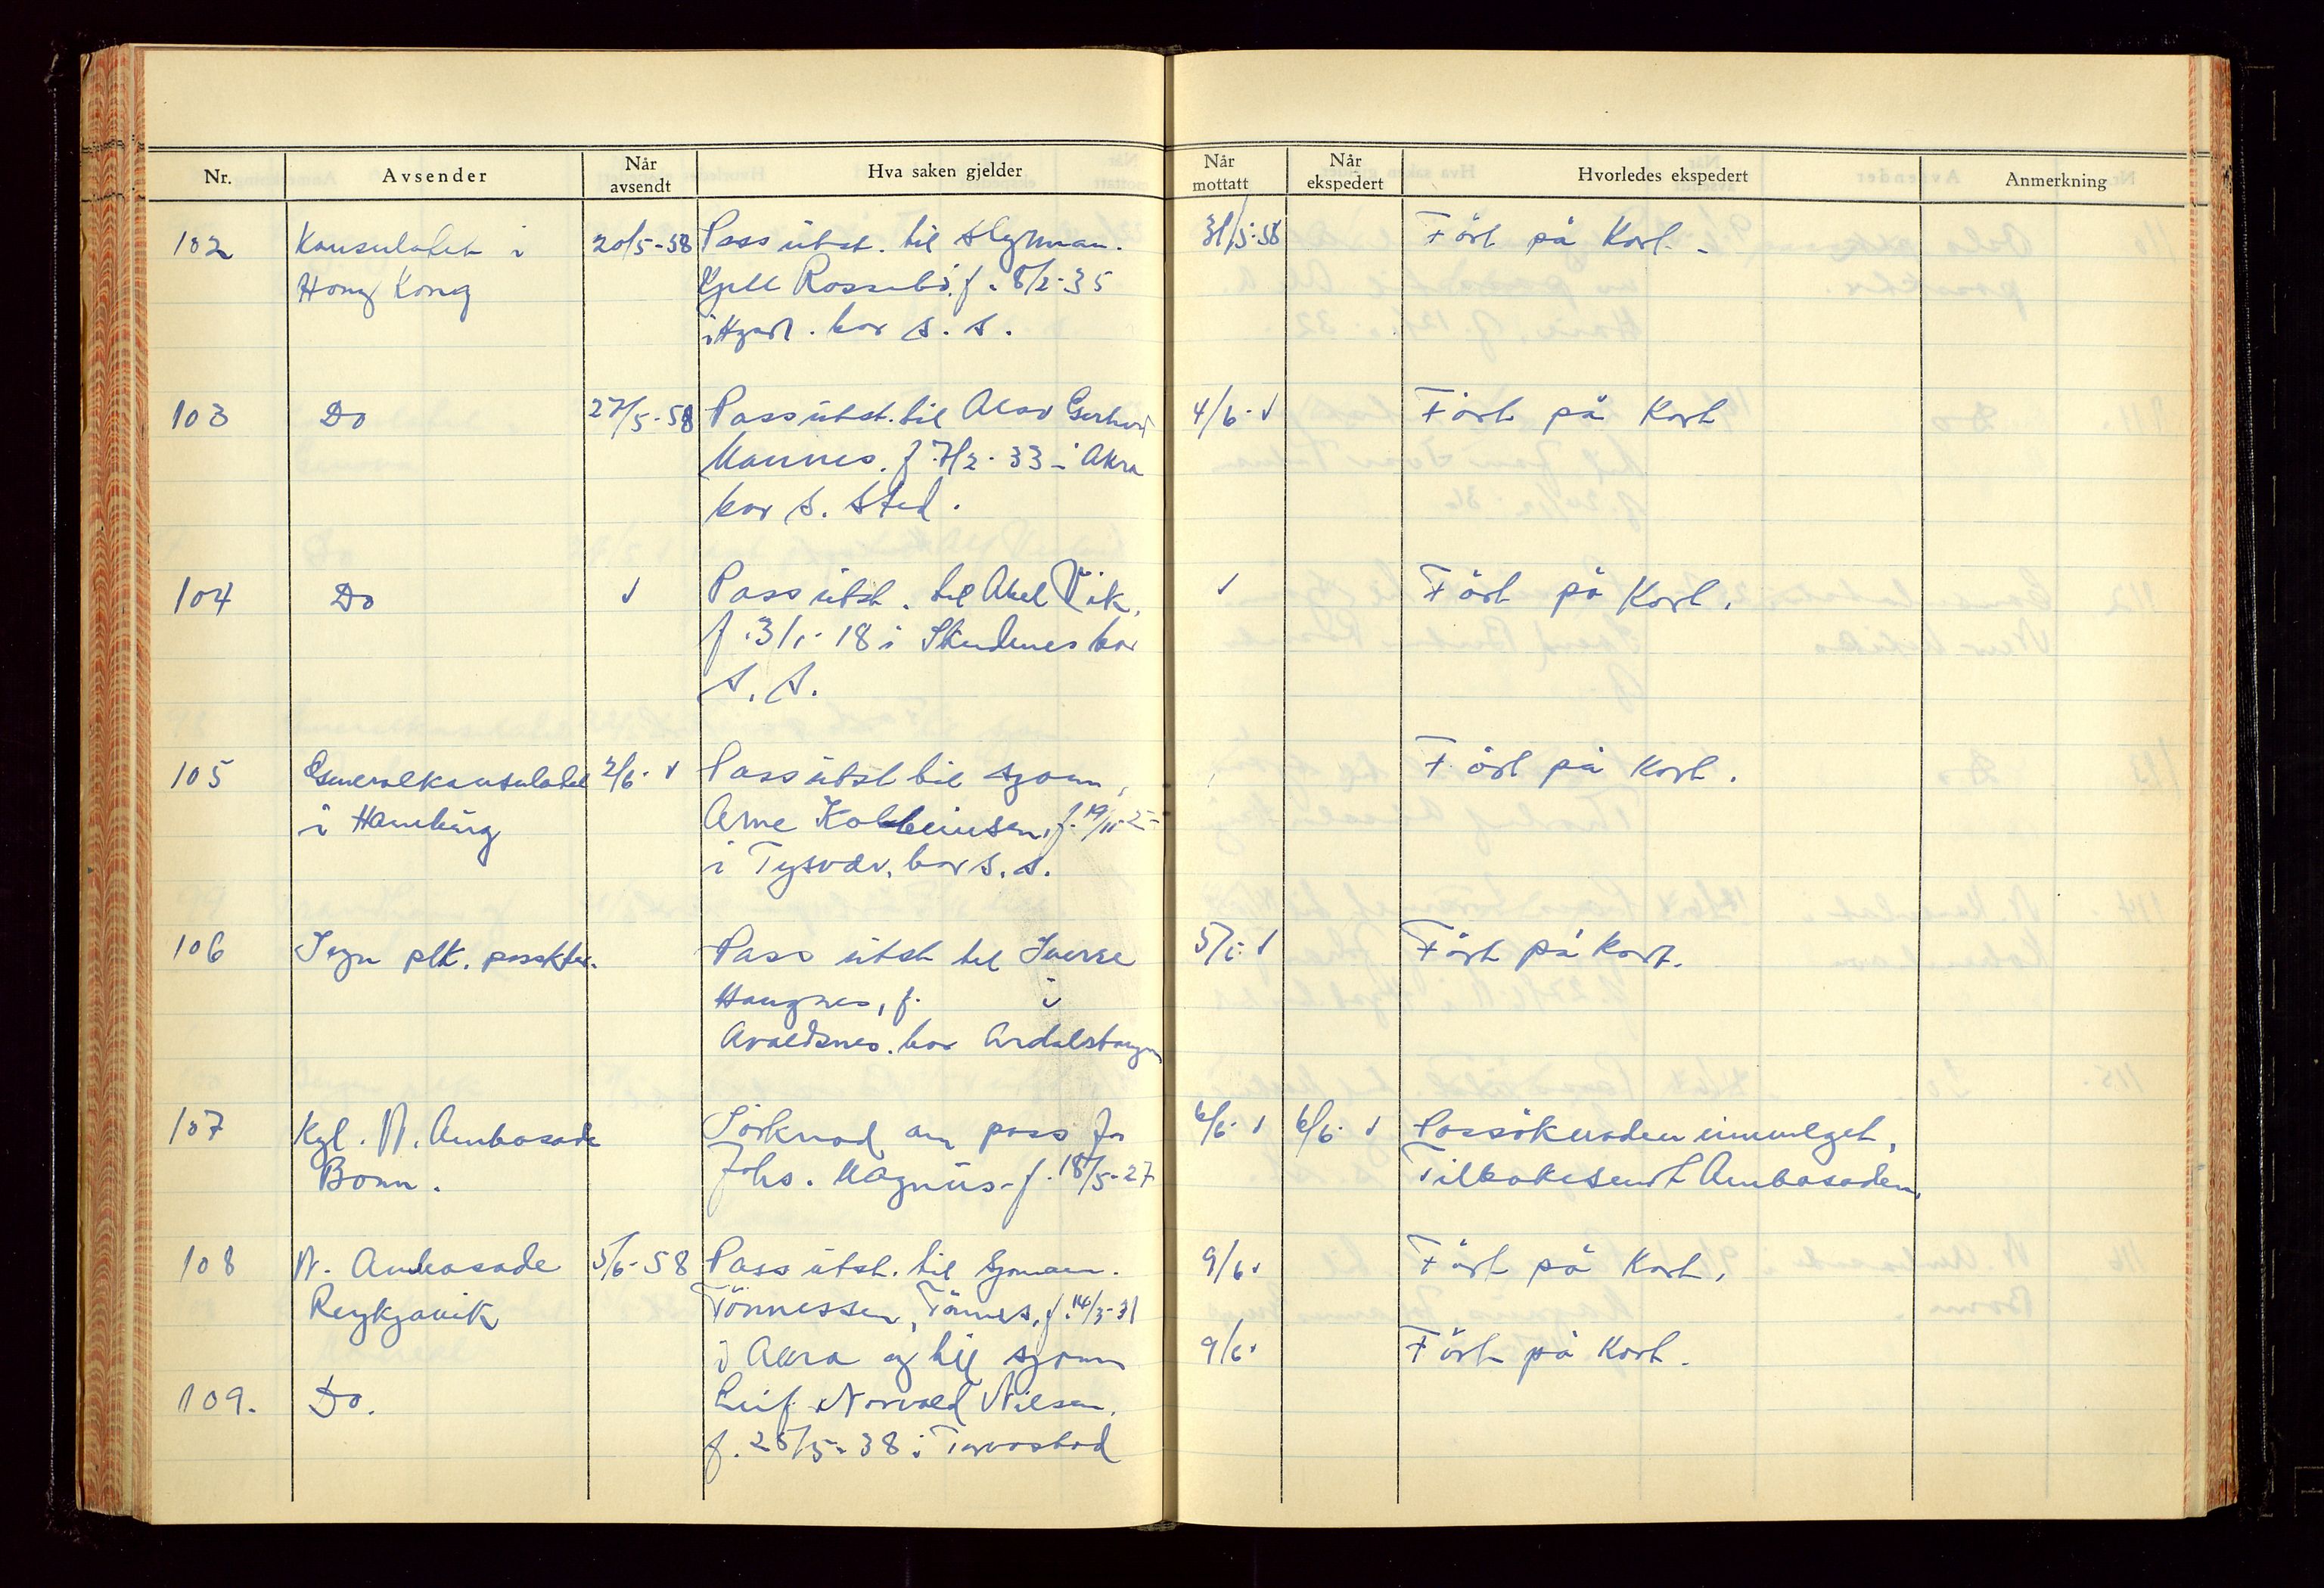 Nr. Avsender Når avsendt Hva saken gjelder Når mottatt Når ekspedert Hvorledes ekspedert Anmerkning
102 Konsulatet i 20/5-58 Pass utst. til styrman. 31/5-58 Ført på Kort.
Hong Kong Kjell Rossebø, f. 8/2-35
i . bor s. s.
103 Do 27/5-58 Pass utst. til Alav Gerhard 4/6- √ Ført på Kort
Mannes. f. 7/2-33 i Åkra
bor s. sted.
104 Do √ Pass utst. til Aksel Vik, √ Ført på Kort.
f. 3/1-18 i Skudenes bor
s. s.
105 Generalkonsulatet 2/6- √ Pass utst til sjøm. Ført på Kort.
i Hamburg Arne Kolbeinsen, f. 19/11-2
i Tysvær. bor s. s.
106 Sogn plk. passktr. Pass utst til Sverre 5/6- √ Ført på Kort.
Haugnes, f. i
Avaldsnes. bor Årdalstangen
107 Kgl. N. Ambasade Sørknad om pass for 6/6- √ 6/6- √ Passøknaden innvilget,
Bonn. Johs. Magnus- f. 18/5-27 Tilbakesendt Ambasaden,
108 N. Ambasade 5/6-58 Pass utst. til sjømann. 9/6 √ Ført på Kort,
Reykjavik Tönnessen, Tönnes, f. 14/3-31
i Åkra og til sjøm 9/6 √ Ført på Kort.
109. Do. Leif Norvald Nilsen,
f. 25/5-38 i Torvastad